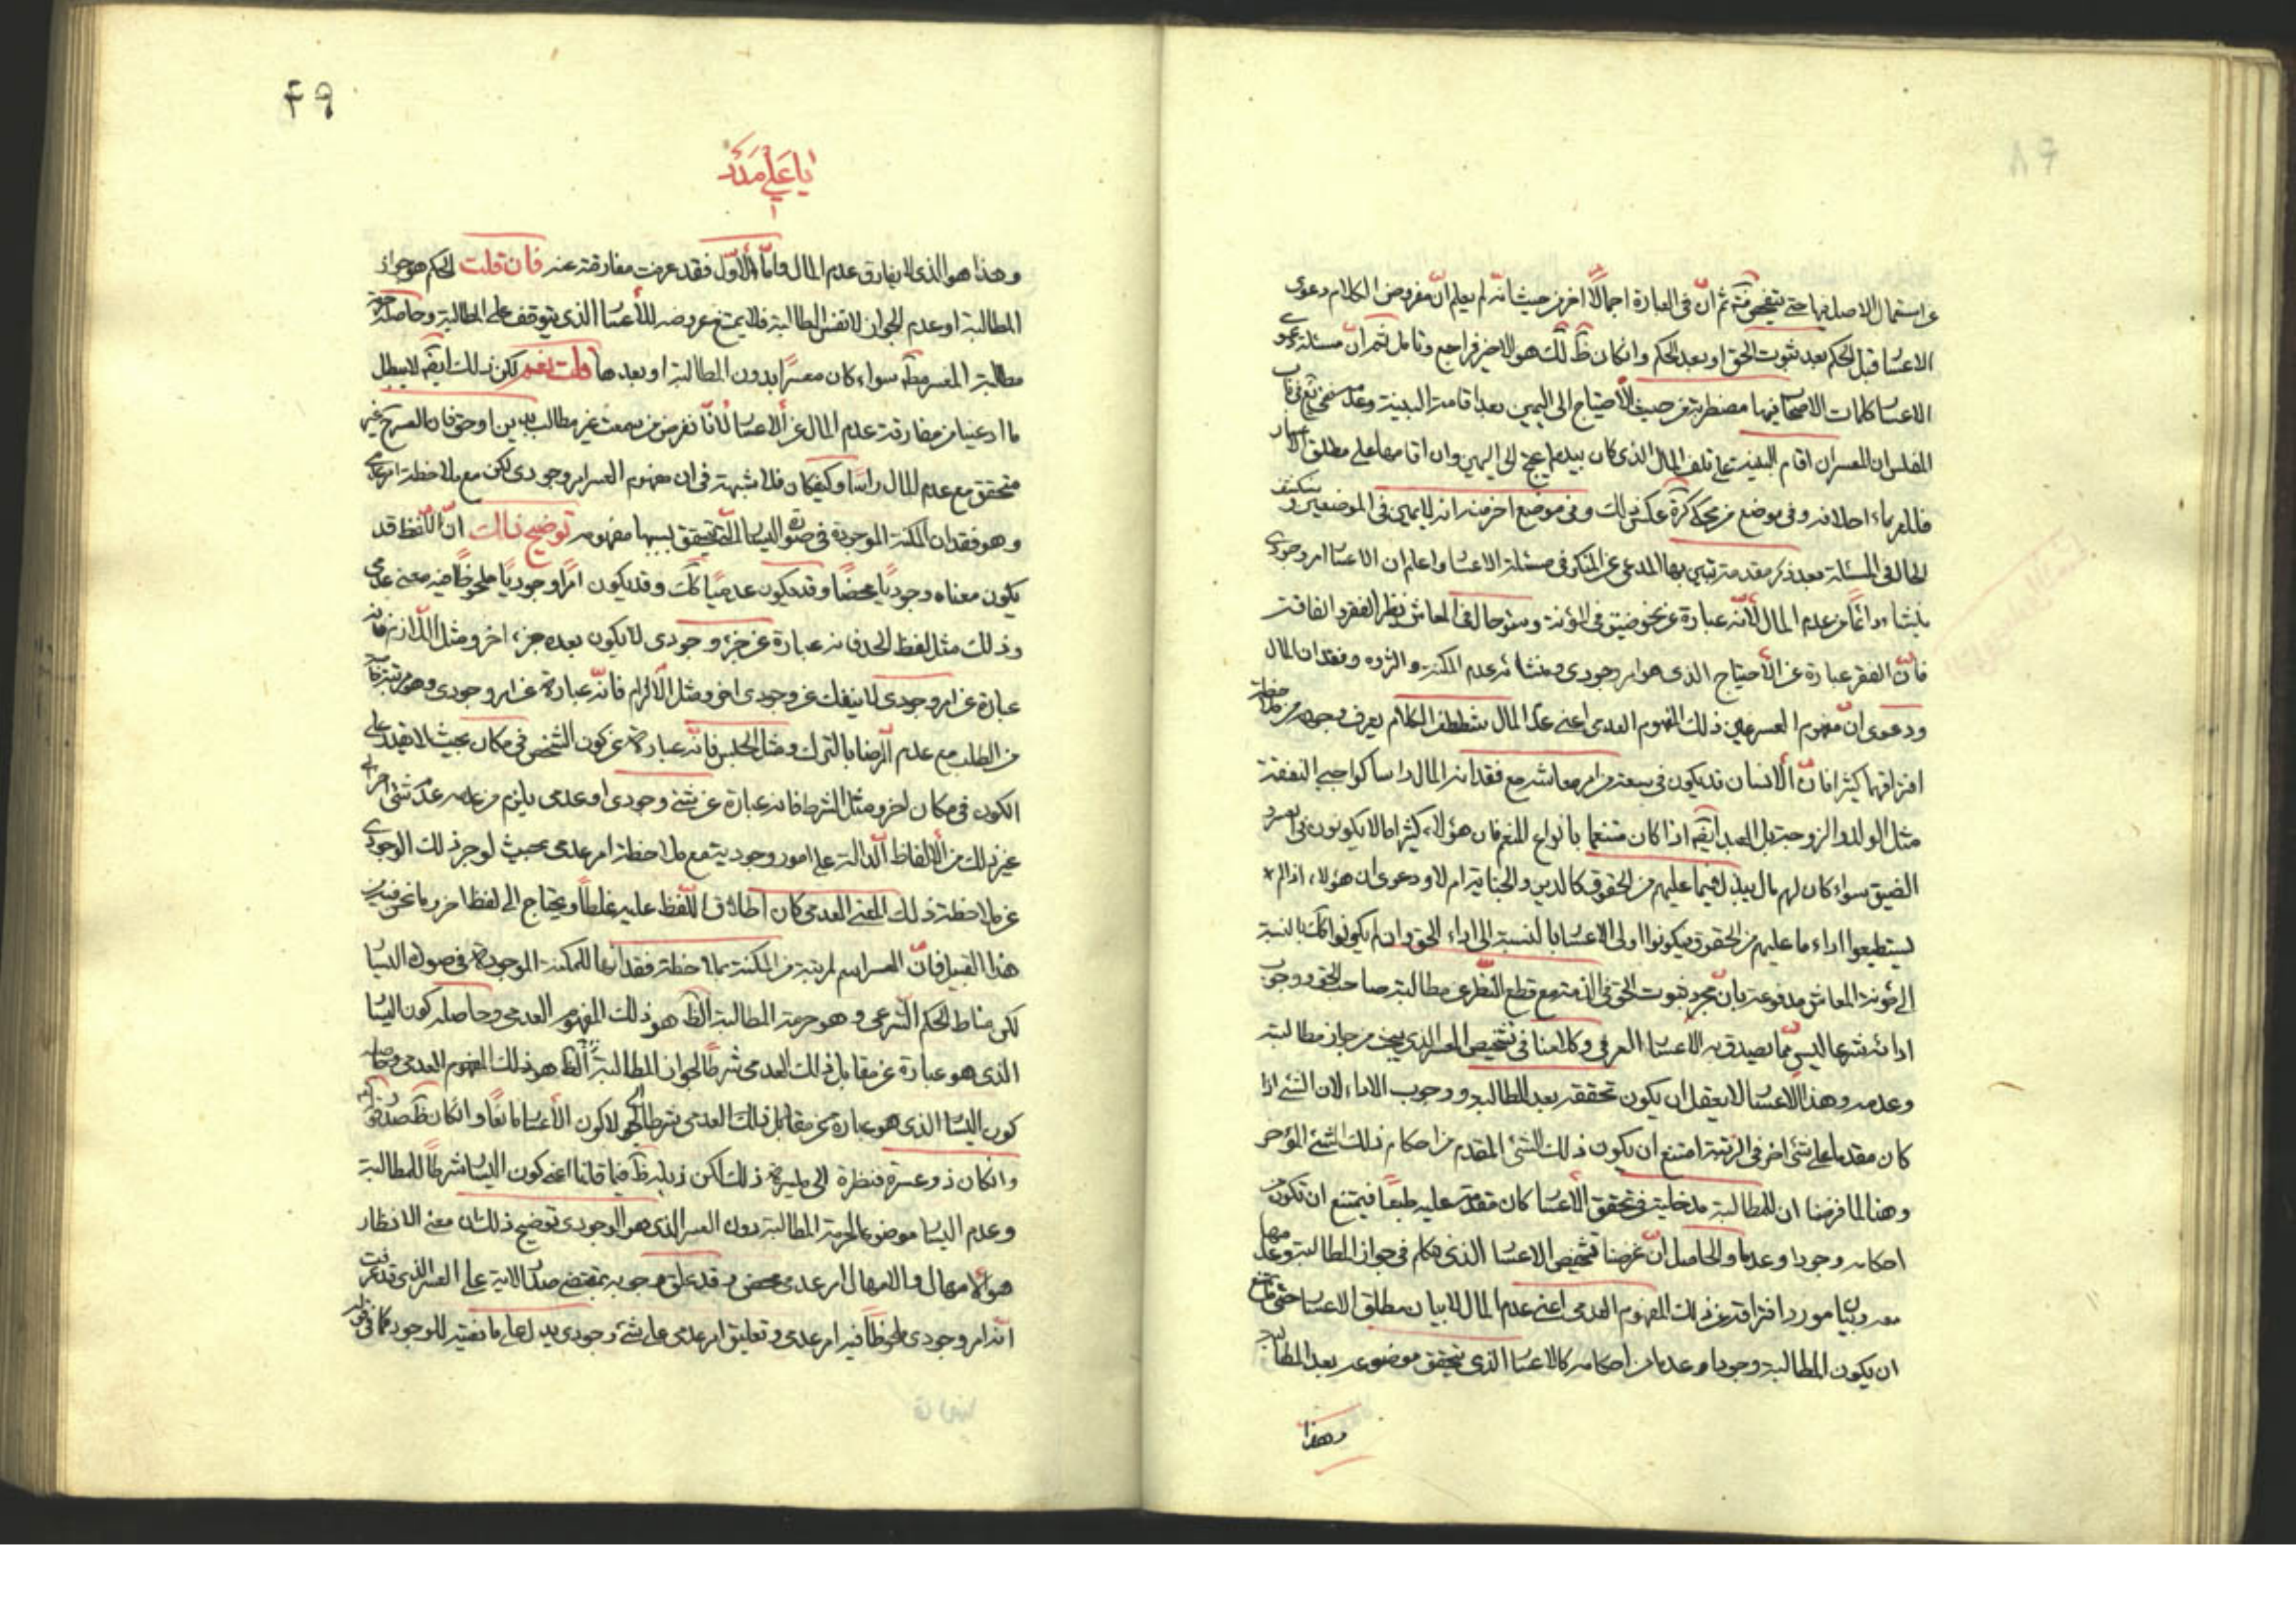 عن استعمال الاصل فيها حتى يتفحص منه ثم انّ فى العبارة اجمالا اخر من حيث انه لم يعلم انّ مفروض الكلام دعوى
الاعسار قبل الحكم بعد ثبوت الحق او بعد الحكم وانكان ظ ذلك هو الاخير فراجع وتامل ثم انّ مسئلة دعوى
الاعسار كلمات الاصحاب فيها مضطربة من حيث الأحتياج الى اليمين بعد اقامة البينة وعدمه
المفلس ان المعسر ان اقام البينة على تلف المال الذى كان بيده لم يحتج الى اليمين وان اقامها على مطلق الاعسار
فللغرماء احلافه وفى موضع من محكى كرة عكس ذلك وفى موضع اخر منه انه لا يمين فى الموضعين
الحال فى المسئلة بعد ذكر مقدمة يتبين بها المدعى عن المنكر فى مسئلة الاعسار واعلم ان الاعسار امر وجودى
ينشاء دائما من عدم المال لأنّه عبارة عن نحو ضيق فى المؤنة وسوء حال فى المعاش نظير الفقر والفاقة
فانّ الفقر عبارة عن الأحتياج الذى هو امر وجودى ومنشائه عدم المكنة والثروه وفقدان المال
ودعوى انّ مفهوم العسر عين ذلك المفهوم العدمى اعنى عدم المال شطط من الكلام يعرف وجهه من ملاحظة
افتراقهما كثيرا فانّ الأنسان قد يكون فى سعة من امر معاشه مع فقدانه المال راسا كواجبى النفقة
مثل الولد والزوجة بل العبد ايضه اذا كان متنعما بانواع النعم فان هؤلاء كثيرا ما لا يكونون فى العسر و
الضيق سواء كان لهم مال يبذل فيما عليهم من الحقوق كالدين والجناية ام لا ودعوى ان هؤلاء اذا لم
يستطيعوا اداء ما عليهم من الحقوق فيكونوا اولى الاعسار بالنسبة الى اداء الحق وان لم يكونوا كك بالنسبة
الى مؤنة المعاش مدفوعة بانّ مجرد ثبوت الحق فى الذمة مع قطع النظر عن مطالبة صاحب الحق ووجوب
ادائه شرعا ليس ممّا يصدق به الاعسار العرفى وكلامنا فى تشخيص العسر الذى يبحث من جواز مطالبة
وعدمه وهذا الاعسار لا يعقل ان يكون تحققه بعد المطالبة ووجوب الاداء لان الشئ اذا
كان مقدما على شئ اخر فى الرتبة امتنع ان يكون ذلك الشئ المقدم من احكام ذلك الشئ المؤخر
وهنا لما فرضنا ان للمطالبة مدخلية فى تحقق الأعسار كان مقدمة عليه طبعا فيمتنع ان تكون من
احكامه وجودا وعدما والحاصل انّ غرضنا تشخيص الاعسار الذى نتكلم فى جواز المطالبة وعدمها
معه وبيان مورد افتراقه عن ذلك المفهوم العدمى اعنى عدم المال لا بيان مطلق الاعسار حتى
ان يكون المطالبة وجودا وعدما من احكامه كالاعسار الذى يتحقق موضوعه بعد المطالبة
وهذا
۴۹
يا على مدد
وهذا هو الذى لا يفارق عدم المال وامّا الأوّل فقد عرفت مفارقته عنه فان قلت الحكم هو جواز
المطالبة او عدم الجواز لا نفس المطالبة فلا يمتنع عروضه للأعسار الذى يتوقف على المطالبة وحاصله
مطالبة المعسر مطه سواء كان معسرا بدون المطالبة او بعدها قلت نعم لكن ذلك ايضه لا يبطل
ما ادعينا من مفارقة عدم المال عن الاعسار لأنّا نفرض من غير مطالب بدين او حق فان العسر ح غير
متحقق مع عدم المال راسا وكيفكان فلا شبهة فى ان مفهوم العسر امر وجودى لكن مع ملاحظة امر عدمى
وهو فقدان المكنة الموجودة فى صورة اليسار التى يتحقق بسببها مفهومه توضيح ذلك انّ اللّفظ قد
يكون معناه وجوديا محضا وقد يكون عدميّا كك وقد يكون امرا وجوديا ملحوظا فيه معنى عدمى
وذلك مثل لفظ الحد فانه عبارة عن جزء وجودى لا يكون بعده جزء اخر ومثل اللّازم فانه
عبارة عن امر وجودى لا ينفك عن وجودى اخر ومثل الألزام فانّه عبارة عن امر وجودى وهو مرتبة
من الطلب مع عدم الرضا بالترك ومثل الحبس فانّه عبارة عن كون الشخص فى مكان بحيث لا يقدر على
الكون فى مكان اخر ومثل الشرط فانه عبارة عن شئ وجودى او عدمى يلزم من عدمه عدم شئ اخر الى
غير ذلك من الألفاظ الدّالة على امور وجودية مع ملاحظة امر عدمى بحيث لو جرد ذلك الوجودى
عن ملاحظة ذلك المعنى العدمى كان اطلاق اللّفظ عليه غلطا ويحتاج الى لفظ اخر وما نحن فيه من
هذا القبيل فانّ العسر اسم لمرتبة من المكنة بملاحظة فقدانها للمكنة الموجودة فى صورة اليسار
لكن مناط الحكم الشّرعى وهو حرمة المطالبة الظ هو ذلك المفهوم العدمى وحاصله كون اليسار
الذى هو عبارة عن مقابل ذلك العدمى شرطا لجواز المطالبة الظ هو ذلك المفهوم العدمى وحاصله
كون اليسار الذى هو عبارة عن مقابل ذلك العدمى شرطا لجواز لا كون الأعسار مانعا وانكان ظ صدر قوله
وانكان ذو عسرة فنظرة الى ميسرة ذلك لكن ذيله ظ فيما قلنا اعنى كون اليسار شرطا للمطالبة
وعدم اليسار موضوعا لحرمة المطالبة دون العسر الذى هو الوجودى توضيح ذلك ان معنى الانظار
هو الأمهال والامهال امر عدمى محض وقد علق وجوبه بمقتضى صدر الاية على العسر الذى قد عرفت
انّه امر وجودى ملحوظا فيه امر عدمى وتعليق امر عدمى على شئ وجودى يدل على مانعية للوجود كما فى قوله